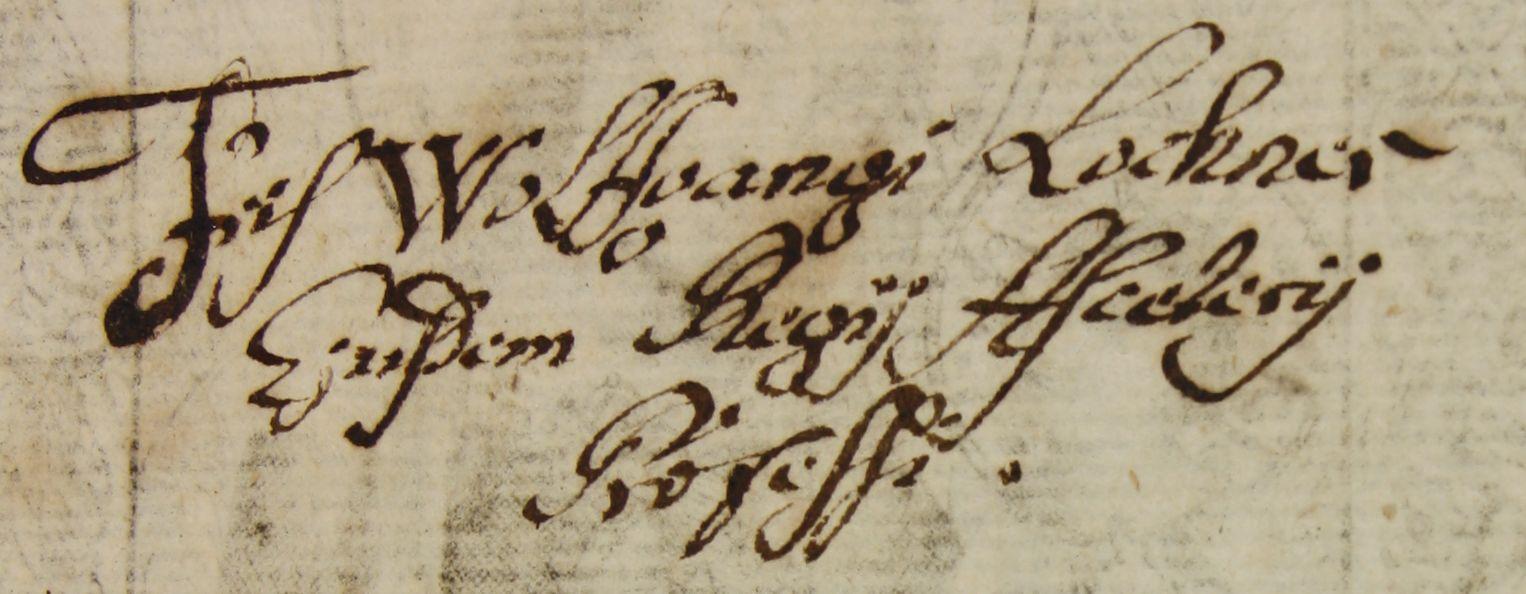 Fris Wolffgangi Lochner
Eiusdem Regij Asceterij
Professi.